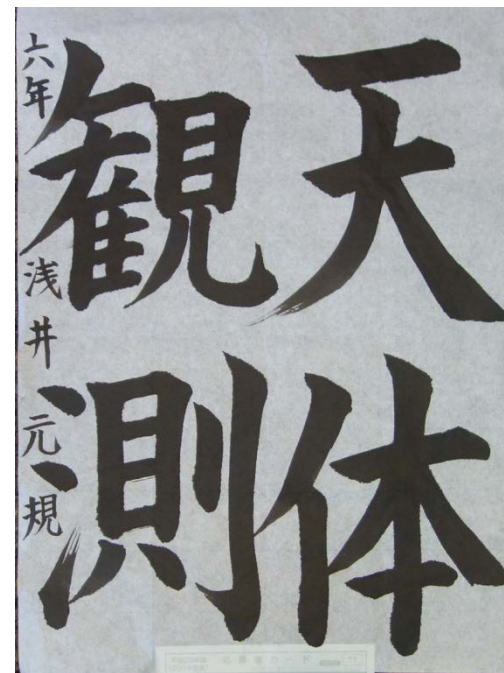 天体
観測
六年 浅井元規